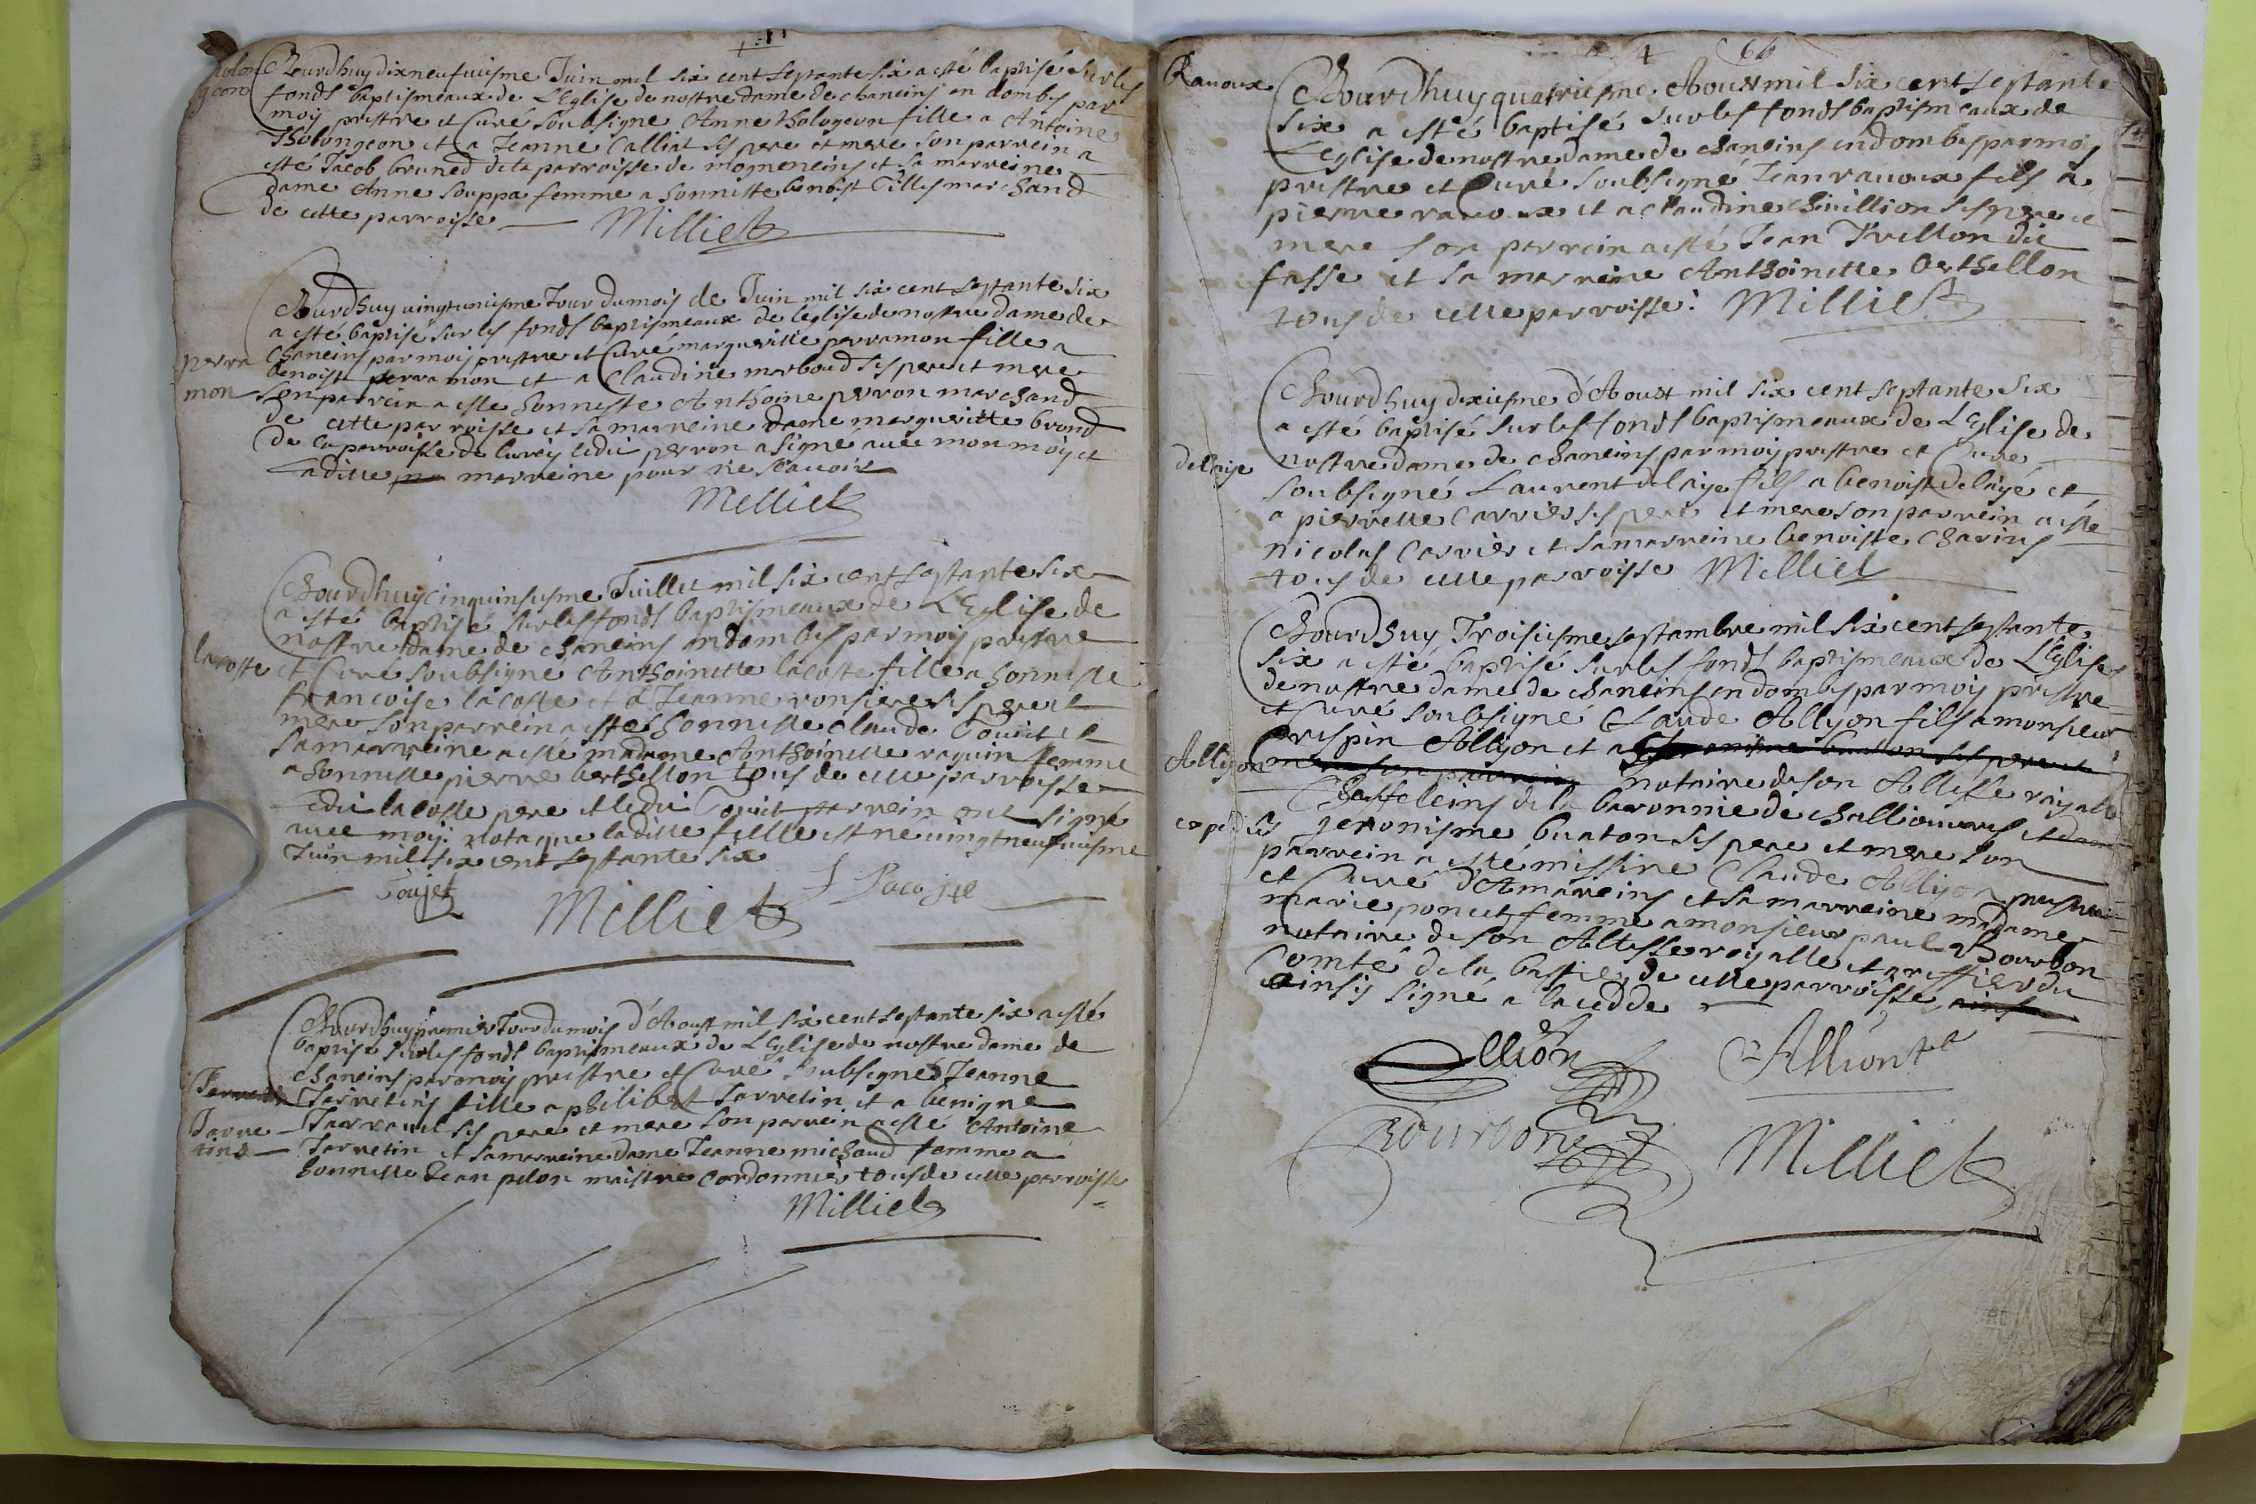 Cejourdhuy dixneufuiesme Juin mil six cent septante six a esté baptisé sur les
fonds baptismeaux de L'Eglise de nostre dame de chaneins en dombes par
moy prestre et Curé soubsigne Anne tholongeon fille a Antoine
Tholongeon et a Jeanne Calliat ses pere et mere son parrein a
esté Jacob bruned de la parroisse de mogneneins et sa marreine
dame Anne souppa femme a honniste benoist Cillis marchand
de cette parroisse
Milliet
Cejourdhuy uingtuniesme Jour du mois de Juin mil six cent septante six
a esté baptisé sur les fonds baptismeaux de leglise de nostre dame de
perra
chaneins par moy prestre et Curé margueritte perramon fille a
benoist perramon et a Claudine marboud ses pere et mere
mon
son parrein a este honneste Anthoine perron marchand
de cette parroisse et sa marreine dame margueritte brond
de la parroisse de lurcy ledit perron a signe auec moy et
laditte marreine pour ne scauoir
Milliet
Cejourdhuy cinquiesme Juillet mil six cent septante six
a esté baptisé sur les fonds baptismeaux de L'Eglise de
nostre dame de chaneins en dombes par moy prestre
lacoste
et Curé soubsigne Anthoinette lacoste fille a honneste
francoise lacoste et a Jeanne ronsiere ses pere et
mere son parrein a esté honneste Claude Couiet et
sa marreine a esté madame Anthoinette raquin femme
a honneste pierre berthellon tous de cette parroisse
ledit lacoste pere et ledit Couiet parrein ont signé
auec moy: nota que laditte fille est ne uingtneufuiesme
Juin mil six cent septante six
Coujet
Milliet
F Lacoste
Cejourdhuy premier Jour du mois d'Aoust mil six cent septante six a esté
baptise sur les fonds baptismeaux de L'Eglise de nostre dame de
chaneins par moy prestre et Curé soubsigné Jeanne
Jarretins fille a philibert Jarretin et a benigne
Jarre
ses pere et mere son parrein a esté Antoine
tins
Jarretin et sa marreine dame Jeanne michaud femme a
honneste Jean pelon maistre Cordonnier tous de cette parroisse
Milliet
66
Rauoux
Cejourdhuy quatriesme Aoust mil six cent septante
six a esté baptisé sur les fonds baptismeaux de
L'eglise de nostre dame de chaneins en dombes par moy
prestre et Curé soubsigné Jean rauoux fils a
pierre rauoux et a claudine chiuillion ses pere et
mere son parrein a esté Jean Treillon dit
fasse et sa marreine Anthoinette berthellon
tous de cette parroisse: Milliet
Cejourdhuy dixiesme d'Aoust mil six cent septante six
a esté baptisé sur les fonds baptismeaux de L'Eglise de
delaije
nostre dame de chaneins par moy prestre et Curé
soubsigné Laurent delaije fils a benoist delaije et
a pierrette Carrier ses pere et mere son parrein a esté
nicolas Carrier et sa marreine benoiste Charins
tous de cette parroisse Milliet
Cejourdhuy Troisiesme septambre mil six cent septante
six a esté baptisé sur les fonds baptismeaux de L'Eglise
de nostre dame de chaneins en dombes par moy prestre
et Curé soubsigné Claude Alliyon fils a monsieur
Crispin Alliyon et a
Alliyon
notaire de son Altesse royalle
Chaffeleins de la baronnie de challiouures et
expediés
Jeronisme buaton ses pere et mere son
parrein a esté missire Claude Alliyon prestre
et Curé d'Amareins et sa marreine madame
marie poncet femme a monsieur paul bourbon
notaire de son Altesse royalle et greffier du
Comté de la bastie de cette parroisse
ainsy signé a la cedde
Allion
C Allion
Bourbon
Milliet